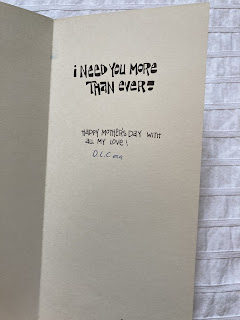 i NEED YOU MORE
THAN EVER!
HAPPY MOTHER'S DAY WITH
all MY LOVE!